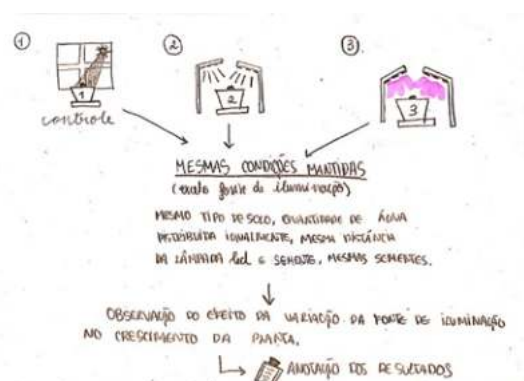 1 2 3
1 2 3
controle
MESMAS CONDIÇÕES MANTIDAS
(exceto fonte de iluminação)
MESMO TIPO DE SOLO, QUANTIDADE DE ÁGUA
DISTRIBUÍDA IGUALMENTE, MESMA DISTÂNCIA
DA LÂMPADA led E SEMENTE, MESMAS SEMENTES.
OBSERVAÇÃO DO EFEITO DA VARIAÇÃO DA FONTE DE ILUMINAÇÃO
NO CRESCIMENTO DA PLANTA.
ANOTAÇÃO DOS RESULTADOS